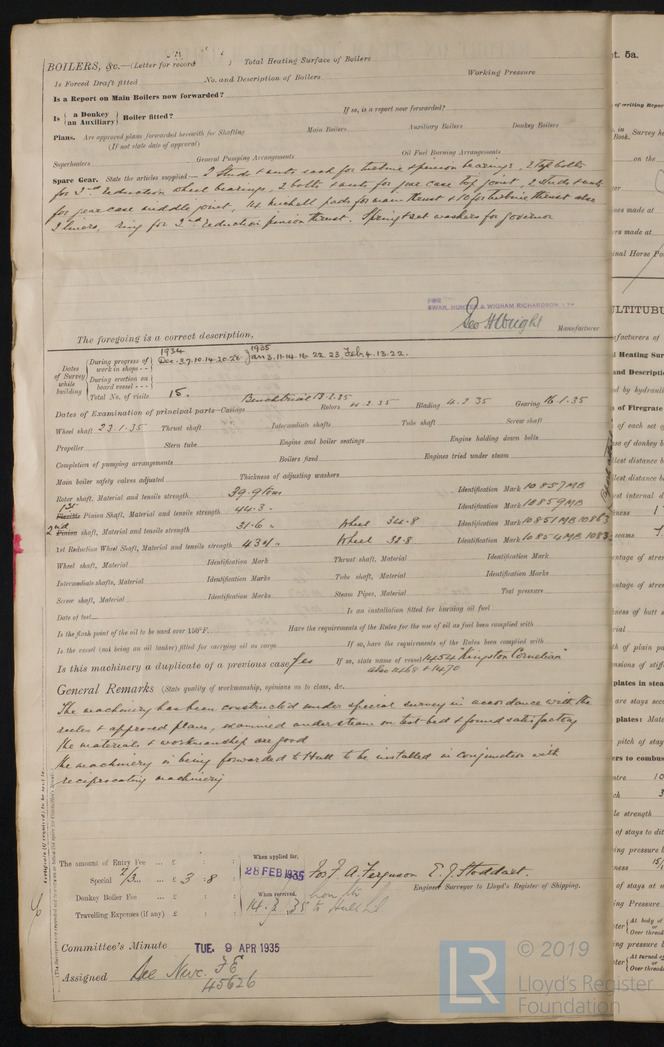 BOILERS, &c.—(Letter for record ) Total Heating Surface of Boilers
Is Forced Draft fitted No. and Description of Boilers Working Pressure
Is a Report on Main Boilers now forwarded?
Is { a Donkey / an Auxiliary } Boiler fitted? If so, is a report now forwarded?
Plans. Are approved plans forwarded herewith for Shafting Main Boilers Auxiliary Boilers Donkey Boilers
(If not state date of approval)
Superheaters General Pumping Arrangements Oil Fuel Burning Arrangements
Spare Gear. State the articles supplied:— 2 Studs & nuts each for turbine & pinion bearings, 2 top bolts
for 2nd reduction wheel bearings, 2 bolts & nuts for gear case top joint, 2 studs & nuts
for gear case middle joint, 14 michell pads for main thrust & 10 for turbine thrust also
2 liners, ring for 2nd reduction pinion thrust. Spring & set washers for governor
FOR
SWAN, HUNTER & WIGHAM RICHARDSON, LTD
Geo H Wright
The foregoing is a correct description, Manufacturer
Dates of Survey while building
During progress of work in shops - - 1934 Dec. 3.7.10.14.20.28 1935 Jan 3.11.14.16 22 23 Feb 4.13.22.
During erection on board vessel - - -
Total No. of visits 15.
Bench trial 13.2.35
Dates of Examination of principal parts—Casings Rotors 4.2.35 Blading 4.2.35 Gearing 16.1.35
Wheel shaft 23.1.35 Thrust shaft Intermediate shafts Tube shaft Screw shaft
Propeller Stern tube Engine and boiler seatings Engine holding down bolts
Completion of pumping arrangements Boilers fixed Engines tried under steam
Main boiler safety valves adjusted Thickness of adjusting washers
Rotor shaft, Material and tensile strength 39.9 tons Identification Mark 10857MB
1st Flexible Pinion Shaft, Material and tensile strength 44.3 " Identification Mark 10859MB
2nd Pinion shaft, Material and tensile strength 31.6 " Wheel 34.8 Identification Mark 10851MB 10863
1st Reduction Wheel Shaft, Material and tensile strength 43.4 " Wheel 32.8 Identification Mark 10854MB 1083
Wheel shaft, Material Identification Mark Thrust shaft, Material Identification Mark
Intermediate shafts, Material Identification Marks Tube shaft, Material Identification Marks
Screw shaft, Material Identification Marks Steam Pipes, Material Test pressure
Date of test Is an installation fitted for burning oil fuel
Is the flash point of the oil to be used over 150°F. Have the requirements of the Rules for the use of oil as fuel been complied with
Is the vessel (not being an oil tanker) fitted for carrying oil as cargo If so, have the requirements of the Rules been complied with
Is this machinery a duplicate of a previous case Yes If so, state name of vessel 1454 "Kingston Cornelian"
also 1468 & 1470
General Remarks (State quality of workmanship, opinions as to class, &c.
The machinery has been constructed under special survey in accordance with the
rules & approved plans, examined under steam on test bed & found satisfactory
the materials & workmanship are good
the machinery is being forwarded to Hull to be installed in conjunction with
reciprocating machinery
The amount of Entry Fee ... £ : : When applied for,
Special 2/3 ... £ 3 : 8 : 28 FEB 1935 For F. A. Ferguson E. J. Stoddart
Engineer Surveyor to Lloyd's Register of Shipping.
Donkey Boiler Fee ... £ : : When received,
Travelling Expenses (if any) £ : : 14.3.35
Committee's Minute TUE. 9 APR 1935
Assigned See Nwc. F.E.
45626
LR
© 2019
Lloyd's Register
Foundation